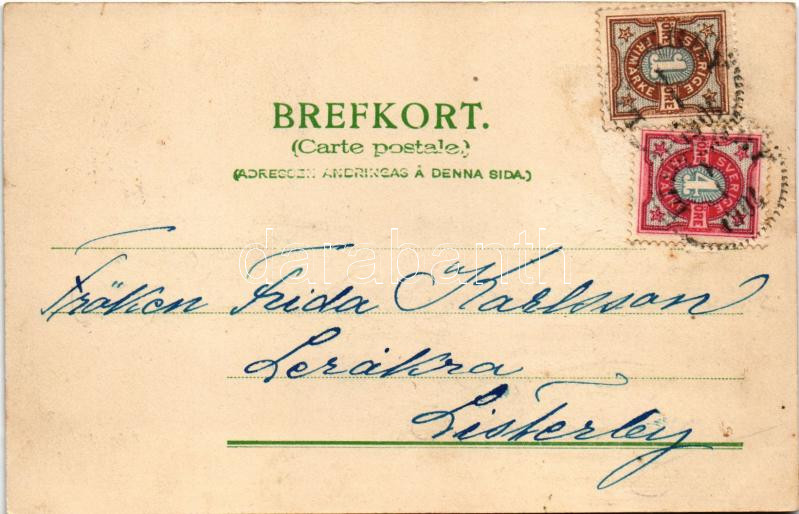 BREFKORT.
(Carte postale.)
(ADRESSEN ANBRINGAS Å DENNA SIDA.)
SVERIGE
1
ÖRE
FRIMÄRKE
ÖRE
SVERIGE
4
ÖRE
FRIMÄRKE
ÖRE
Fröken Frida Karlsson
Leråkra
Listerby
darabanth